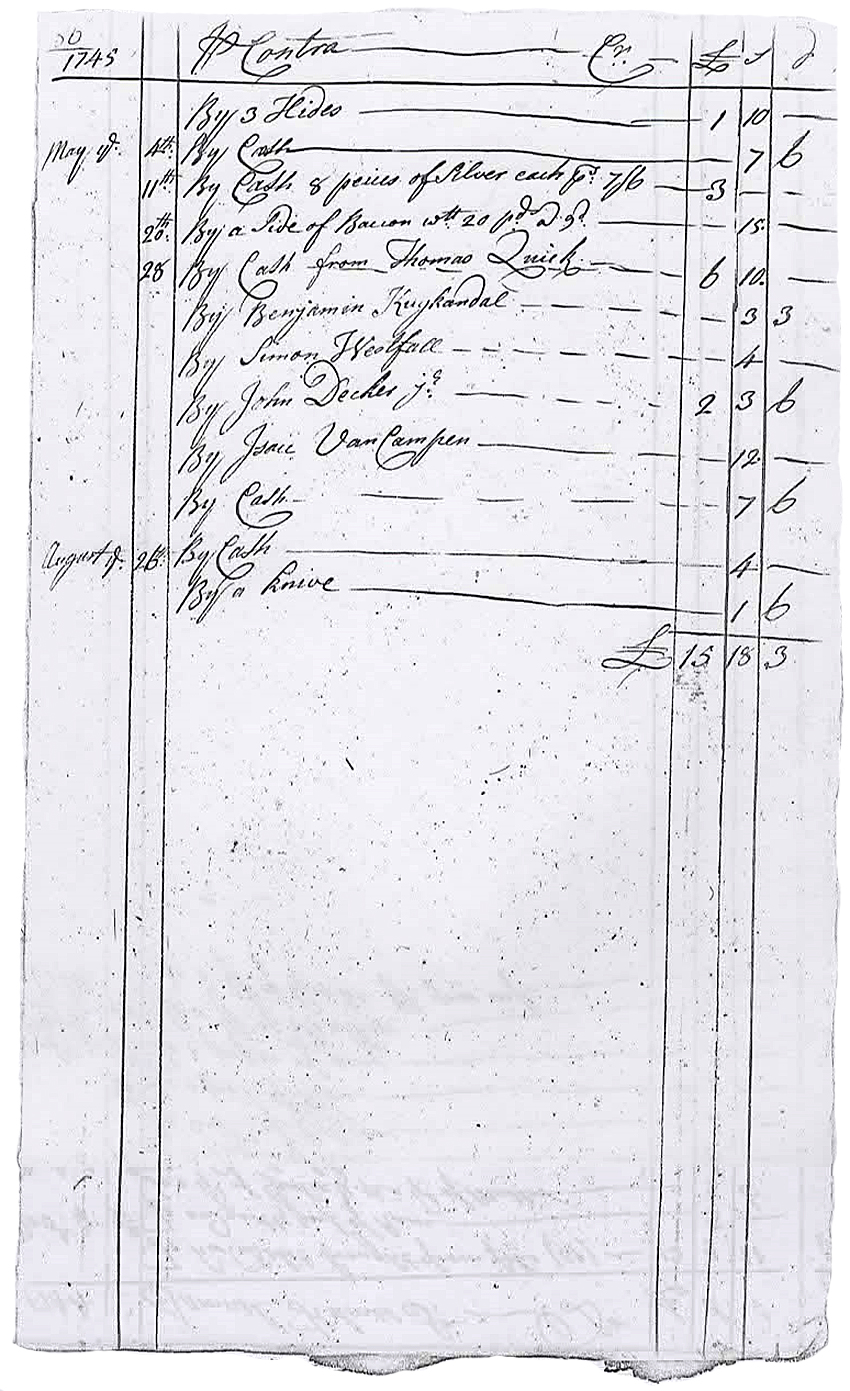 50
1745 ⅌ Contra Cr. £ s d
By 3 Hides 1 10 —
May ye. 4th. By Cash 7 6
11th By Cash 8 peices of Silver each pr. 7/6 3 — —
20th. By a Side of Bacon wtt 20 pds a 9d. 15 —
28 By Cash from Thomas Quick 6 10 —
By Benjamin Kuykandal 3 3
By Simon Westfall 4 —
By John Decker jr. 2 3 6
By Isaac VanCampen 12 —
By Cash 7 6
August ye. 26th. By Cash 4 —
By a knive 1 6
£ 15 18 3